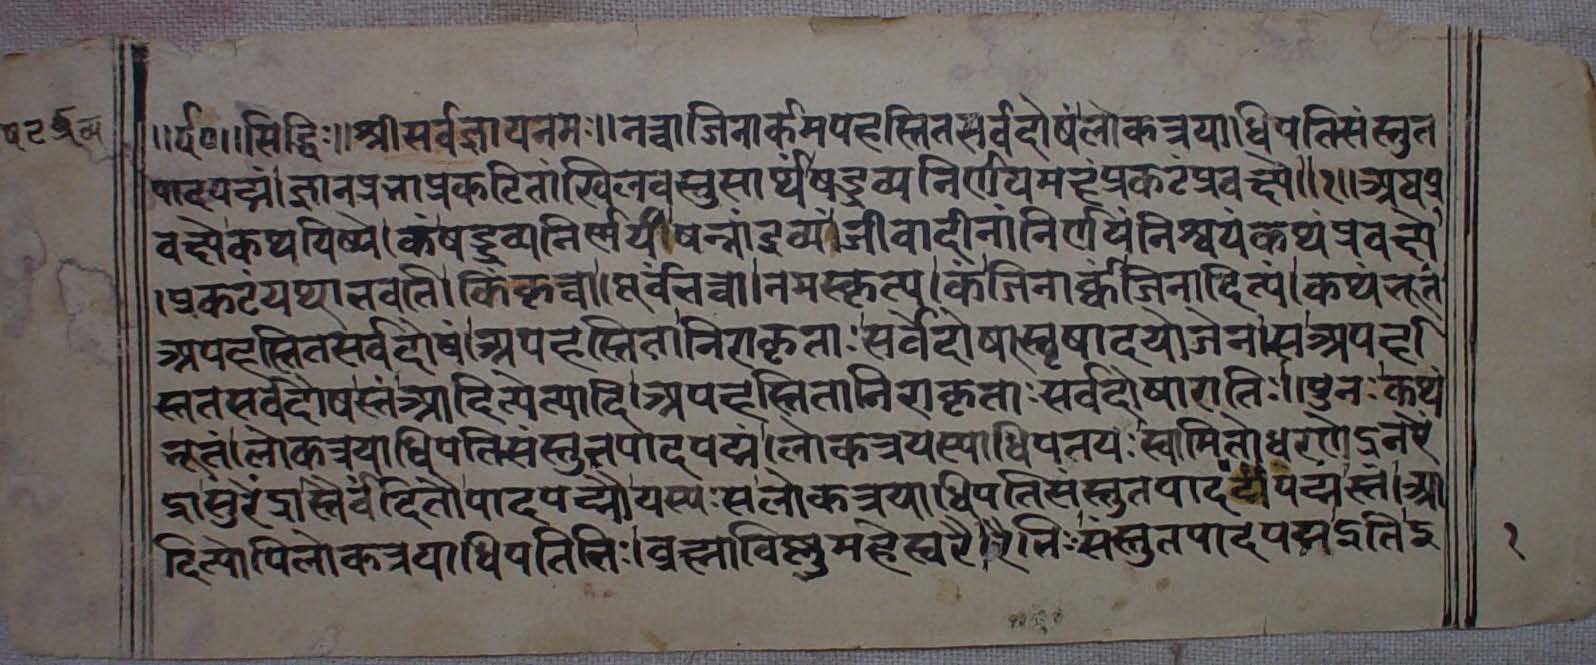 षट्द्रव्य
॥र्द०॥सिद्धिः॥श्रीसर्वज्ञायनमः॥नत्वाजिनार्कमपहस्तितसर्वदोषंलोकत्रयाधिपतिसंस्तुत
पादपद्मं।ज्ञानप्रभाप्रकटितांखिलवस्तुसार्थंषड्द्रव्यनिर्णयमहंप्रकटंप्रवक्ष्ये॥१॥अथप्र
वक्ष्येकथयिष्ये।कंषड्द्रव्यनिर्णयं।षन्नांद्रव्यां।जीवादीनांनिर्णयंनिश्चयंकथंप्रवक्ष्ये
।प्रकटंयथाभवति।किंकृत्वा।पूर्वंनत्वा।नमस्कृत्य।कंजिनार्क्कंजिनादित्यं।कथंभूतं
अपहस्तितसर्वदोषं।अपहस्तितानिराकृताः सर्वेदोषास्तृषादयोजेन।सअपहा
स्ततसर्वदोषस्तंआदित्येत्यादि।अपहस्तितानिराकृताः सर्वदोषारातिः।पुनः कथं
भूतं।लोकत्रयाधिपतिसंस्तुतपादपद्मं।लोकत्रयस्याधिपतयः स्वामितोधरणेऽनरें
द्रासुरेंद्रास्तैर्वंदितौपादपद्मौयस्यः सलोकत्रयाधिपतिसंस्तुतपादपद्मस्तं।आ
दित्योपिलोकत्रयाधिपतिभिः।ब्रह्माविष्णुमहेस्वरैरैभिः संस्तुतपादपद्मइतिइ
१